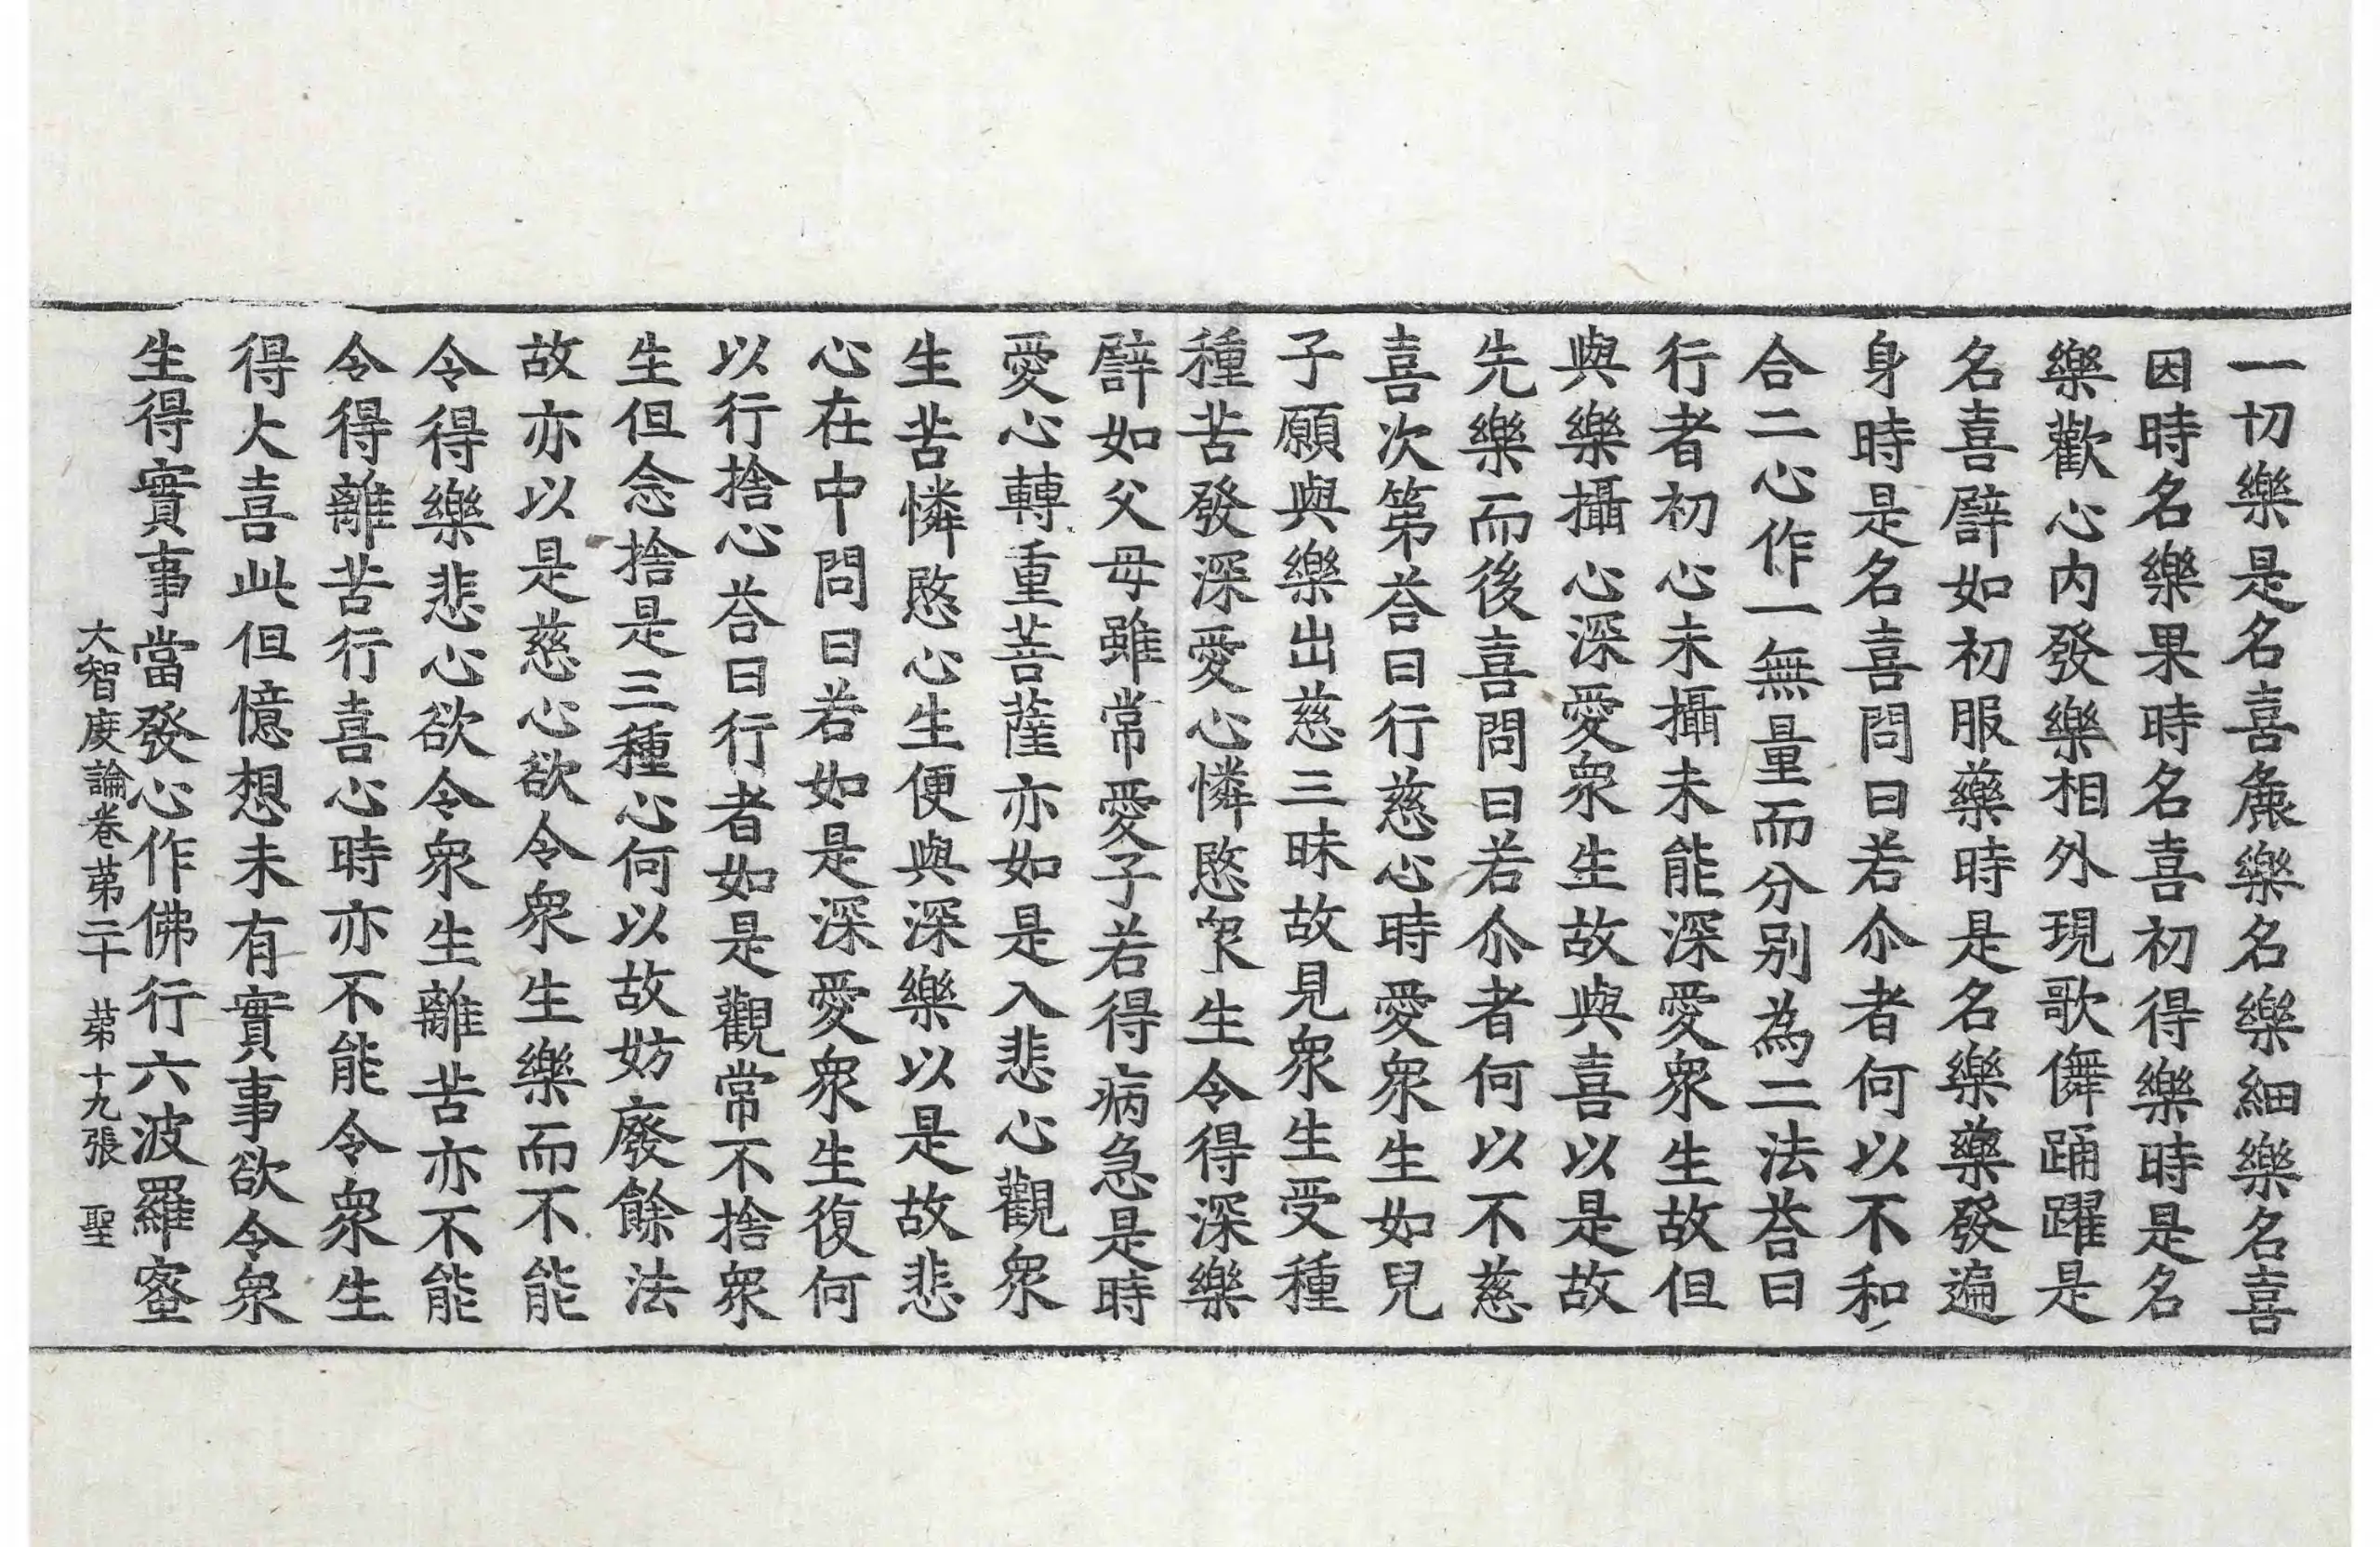 一切樂是名喜麁樂名樂細樂名喜
因時名樂果時名喜初得樂時是名
樂歡心内發樂相外現歌儛踊躍是
名喜譬如初服藥時是名樂藥發遍
身時是名喜問曰若尒者何以不和
合二心作一無量而分别為二法荅曰
行者初心未攝未能深愛衆生故但
與樂攝心深愛衆生故與喜以是故
先樂而後喜問曰若尒者何以不慈
喜次第荅曰行慈心時愛衆生如兒
子願與樂出慈三昧故見衆生受種
種苦發深愛心憐愍衆生令得深樂
譬如父母雖常愛子若得病急是時
愛心轉重菩薩亦如是入悲心觀衆
生苦憐愍心生便與深樂以是故悲
心在中問曰若如是深愛衆生復何
以行捨心荅曰行者如是觀常不捨衆
生但念捨是三種心何以故妨廢餘法
故亦以是慈心欲令衆生樂而不能
令得樂悲心欲令衆生離苦亦不能
令得離苦行喜心時亦不能令衆生
得大喜此但憶想未有實事欲令衆
生得實事當發心作佛行六波羅蜜
大智度論卷苐二十 苐十九張 聖